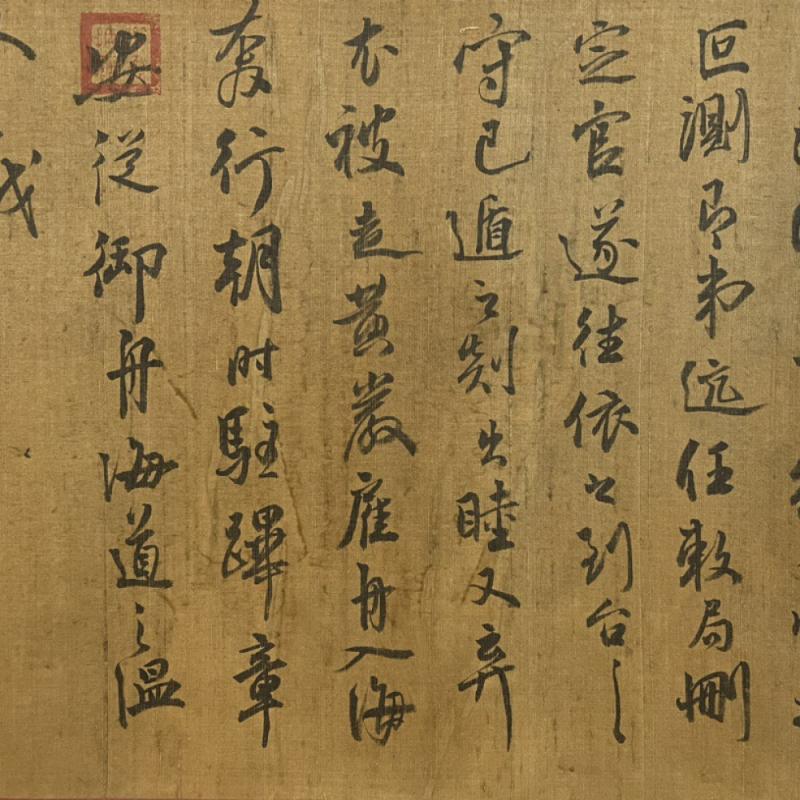 叵測即弟迒任敕局刪
定官遂往依之到台〻
守已遁之剡出睦又弃
衣被走黄巖雇舟入海
奔行朝时駐蹕章
安從御舟海道之溫